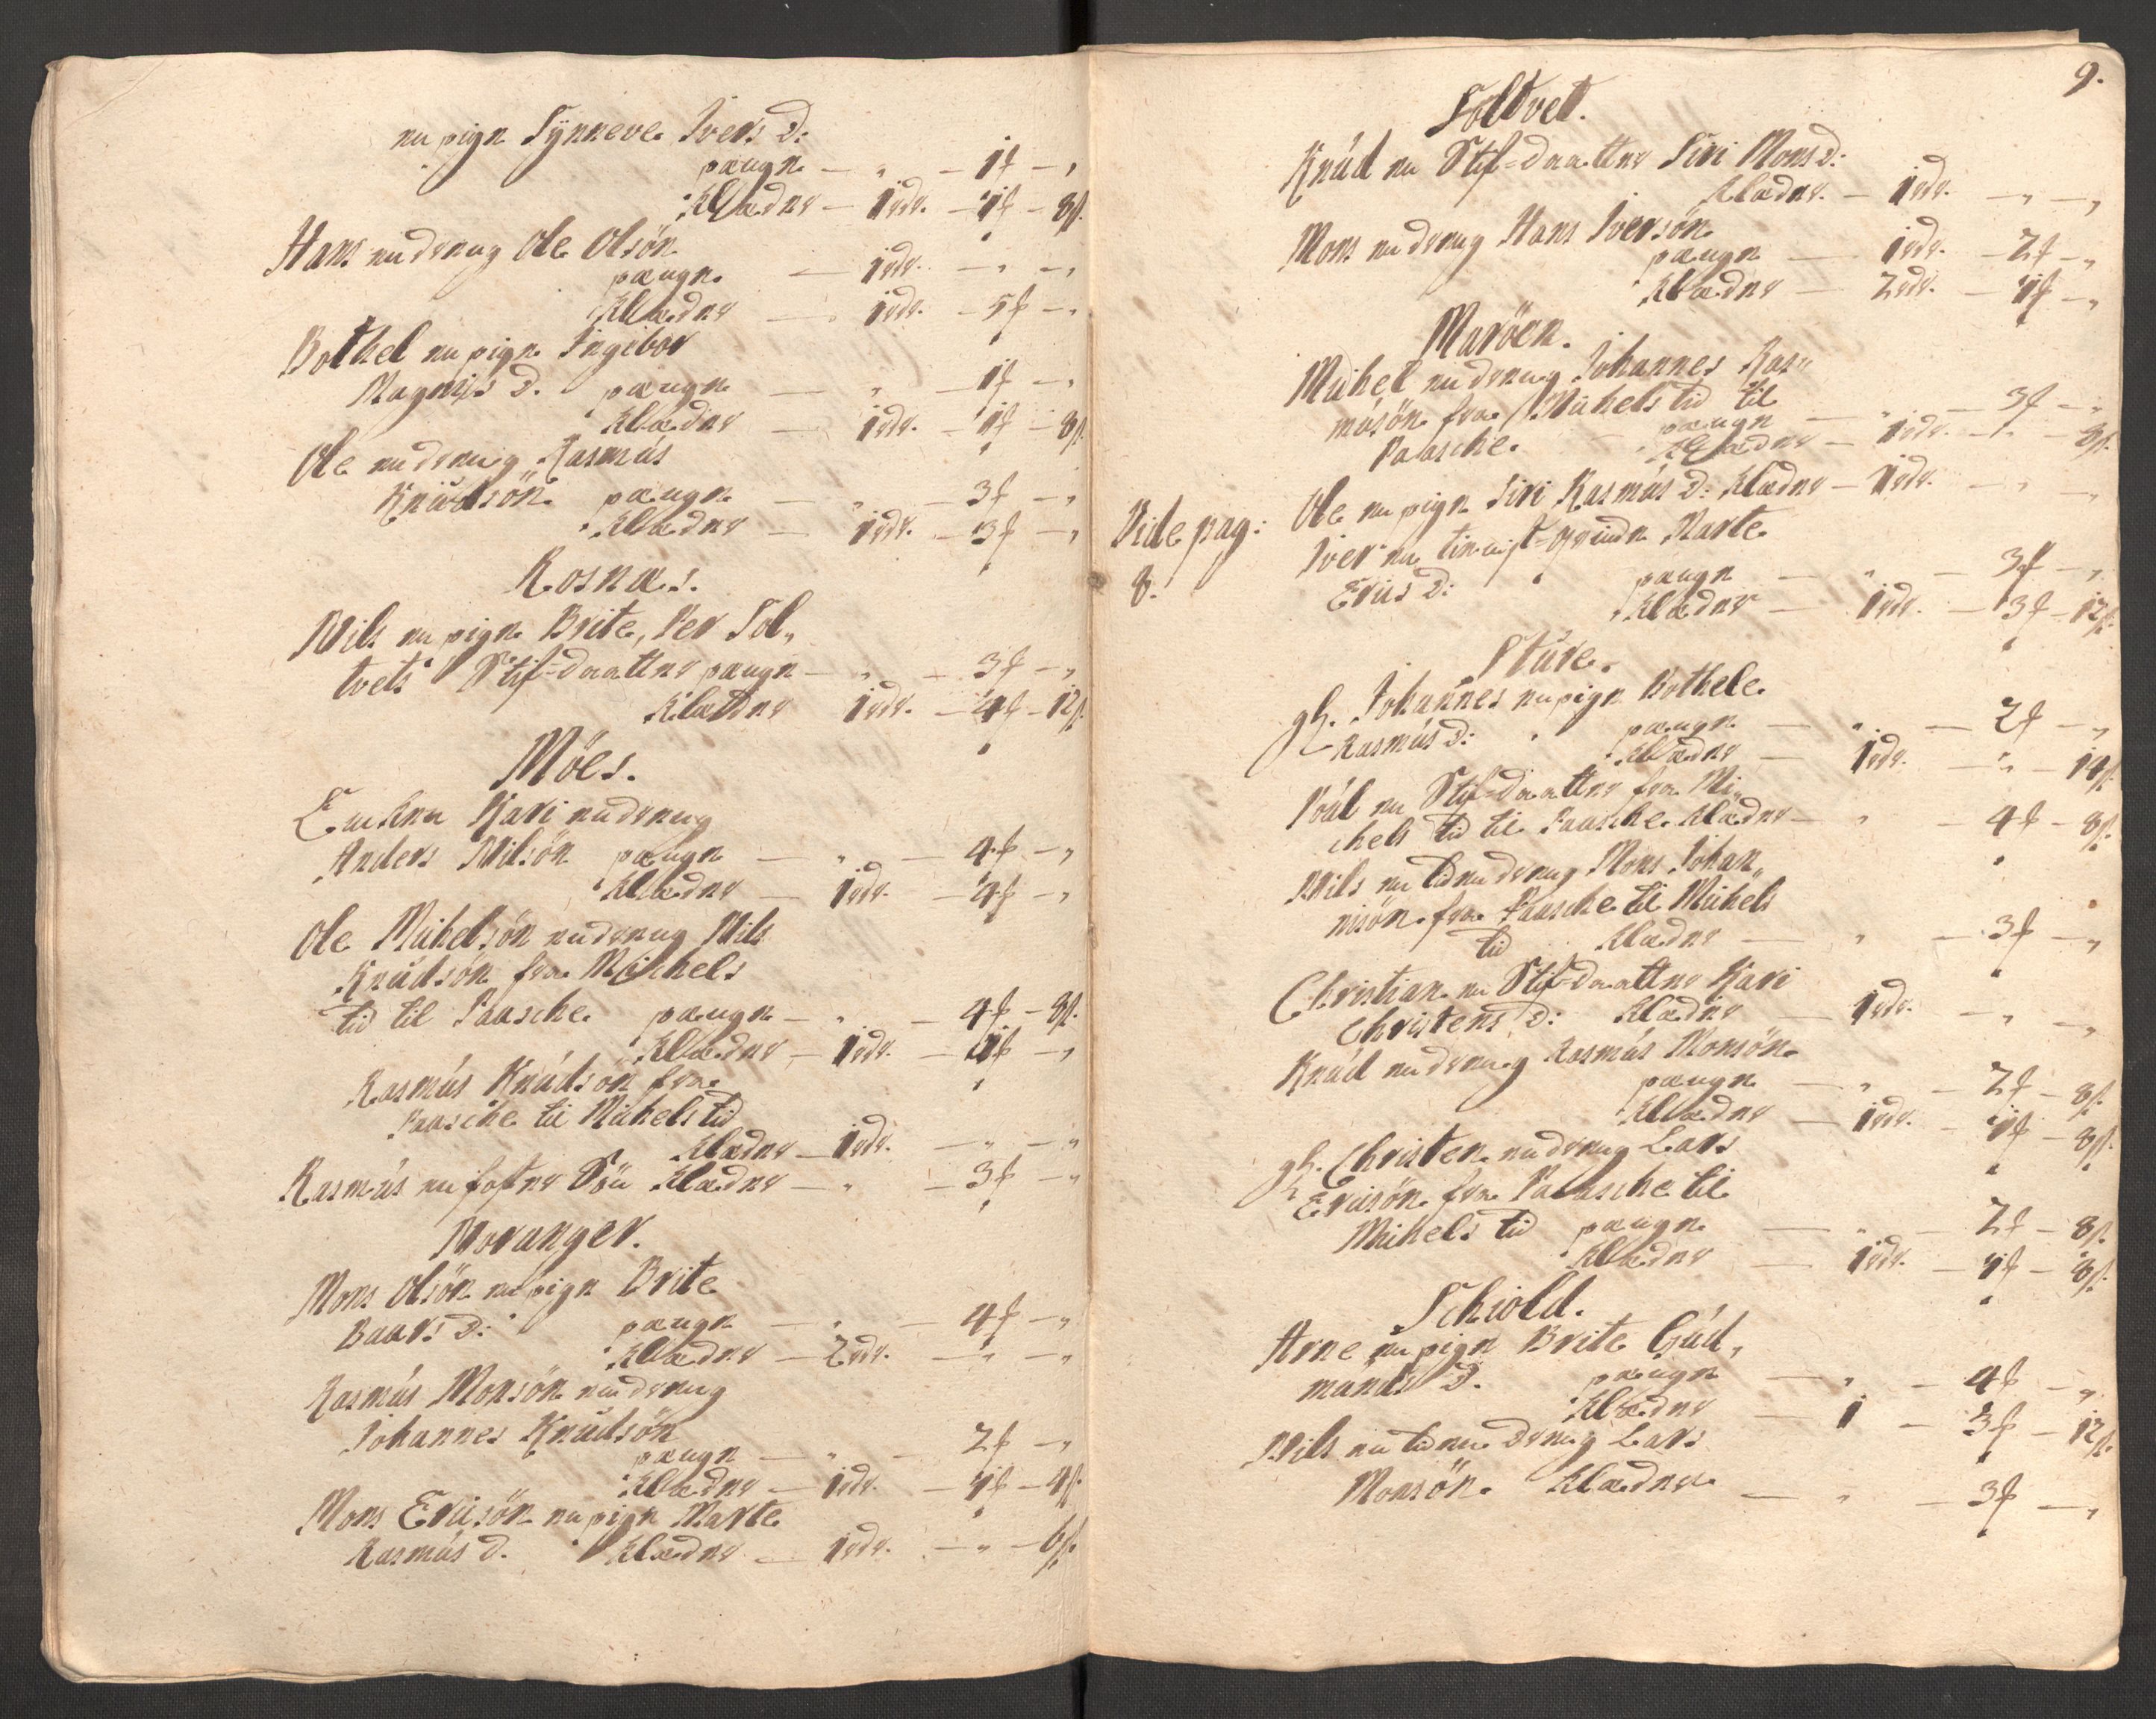 en pige Synneve Ivers d:
penge — „ — 1 f — „
Klæder — 1 rdr. — 1 f — 8 s.
Hans en dreng Ole Olsön
penge — 1 rdr. — „ — „
Klæder — 1 rdr. — 5 f — „
Bothel en pige Ingebor
Magnus d. penge — „ — 1 f — „
Klæder — 1 rdr. — 1 f — 8 s.
Ole en dreng Rasmus
Knudsön penge — „ — 3 f — „
Klæder — 1 rdr. — 3 f — „
Rosnæs.
Nils en pige Brite, Per Sol„
tvets Stif-daatter penge — „ — 3 f — „
Klæder 1 rdr. — 4 f — 12 s.
Möes.
Encken Kari en dreng
Anders Nilsön penge — „ — 4 f — „
Klæder — 1 rdr. — 4 f — „
Ole Michelsön en dreng Nils
Knudsön fra Michels
tid til Paasche penge — „ — 4 f — 8 s.
Klæder — 1 rdr. — 1 f — „
Rasmus Knudsön fra
Paasche til Michels tid
Klæder — 1 rdr. — „ — „
Rasmus en foster Sön Klæder — „ — 3 f — „
Noranger.
Mons Olsön en pige Brite
Baars d: penge — „ — 4 f — „
Klæder — 2 rdr. — „ — „
Rasmus Monsön en dreng
Johannes Knudsön
penge — „ — 2 f — „
Klæder — 1 rdr. — 1 f — 4 s.
Mons Ericsön en pige Marte
Rasmus d. Klæder — 1 rdr. — „ — 6 s.
9.
Soltvet.
Knud en Stif-daatter Siri Mons d:
Klæder. — 1 rdr. — „ — „
Mons en dreng Hans Iversön
penge — 1 rdr. — 2 f — „
Klæder — 2 rdr. — 1 f — „
Maröen.
Michel en dreng Johannes Ras„
musön fra Michels tid til
penge — „ — 3 f — „
Paasche. Klæder — 1 rdr. — „ — 8 s.
Ole en pige Siri Rasmus d: Klæder — 1 rdr. — „ — „
Vide pag:
8.
Iver en tieniste-qvinde Marte
Erics d: penge — „ — 3 f — „
Klæder — 1 rdr. — 3 f — 12 s.
Sture.
gl. Johannes en pige Bothele
Rasmus d: penge — „ — 2 f — „
Klæder — 1 rdr. — „ — 14 s.
Poul en Stif-daatter fra Mi„
chels tid til Paasche Klæder — „ — 4 f — 8 s.
Nils en liden dreng Mons Johan„
nisön fra Paasche til Michels
tid Klæder — „ — 3 f — „
Christian en Stif-daatter Kari
Christens d: Klæder — 1 rdr. — „ — „
Knud en dreng Rasmus Monsön
penge — „ — 2 f — 8 s.
Klæder — 1 rdr. — 1 f — 8 s.
gl. Christen en dreng Lars
Ericsön fra Paasche til
Michels tid penge — „ — 2 f — 8 s.
Klæder — 1 rdr. — 1 f — 8 s.
Schiold.
Arne en pige Brite Gud„
mands d. penge — „ — 4 f — „
Klæder — 1 — 3 f — 12 s.
Nils en liden dreng Lars
Monsön. Klæder — „ — 3 f — „